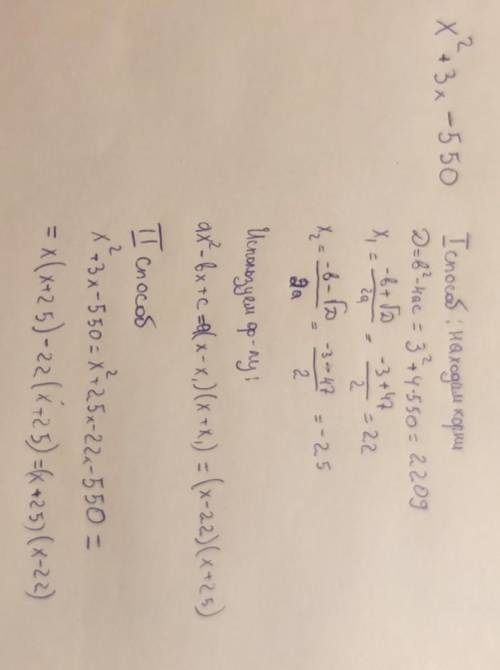 x² + 3x - 550
I способ: находим корни
D = b² - 4ac = 3² + 4·550 = 2209
x₁ = (-b + √D)/2a = (-3 + 47)/2 = 22
x₂ = (-b - √D)/2a = (-3 - 47)/2 = -25
Используем ф-лу:
ax² - bx + c = a(x - x₁)(x + x₁) = (x - 22)(x + 25)
II способ
x² + 3x - 550 = x² + 25x - 22x - 550 =
= x(x + 25) - 22(x + 25) = (x + 25)(x - 22)